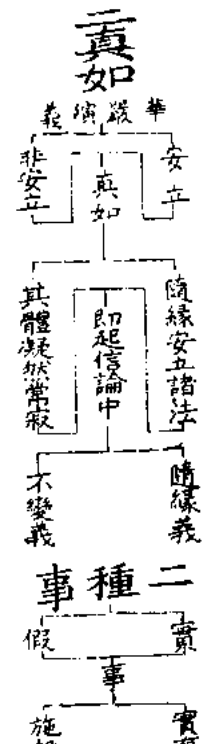 二真如
華嚴演義
安立
真如
非安立
隨緣安立諸法
即起信論中
其體凝然常寂
隨緣義
不變義
二種事
實
事
假
實
施